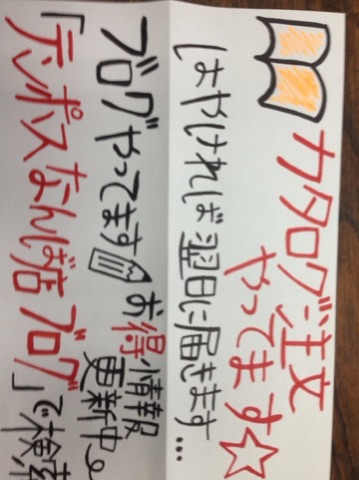 カタログ注文
やってます☆
はやければ翌日に届きます...
ブログやってます
お得情報
更新中
「テンポスなんば店ブログ」で検索